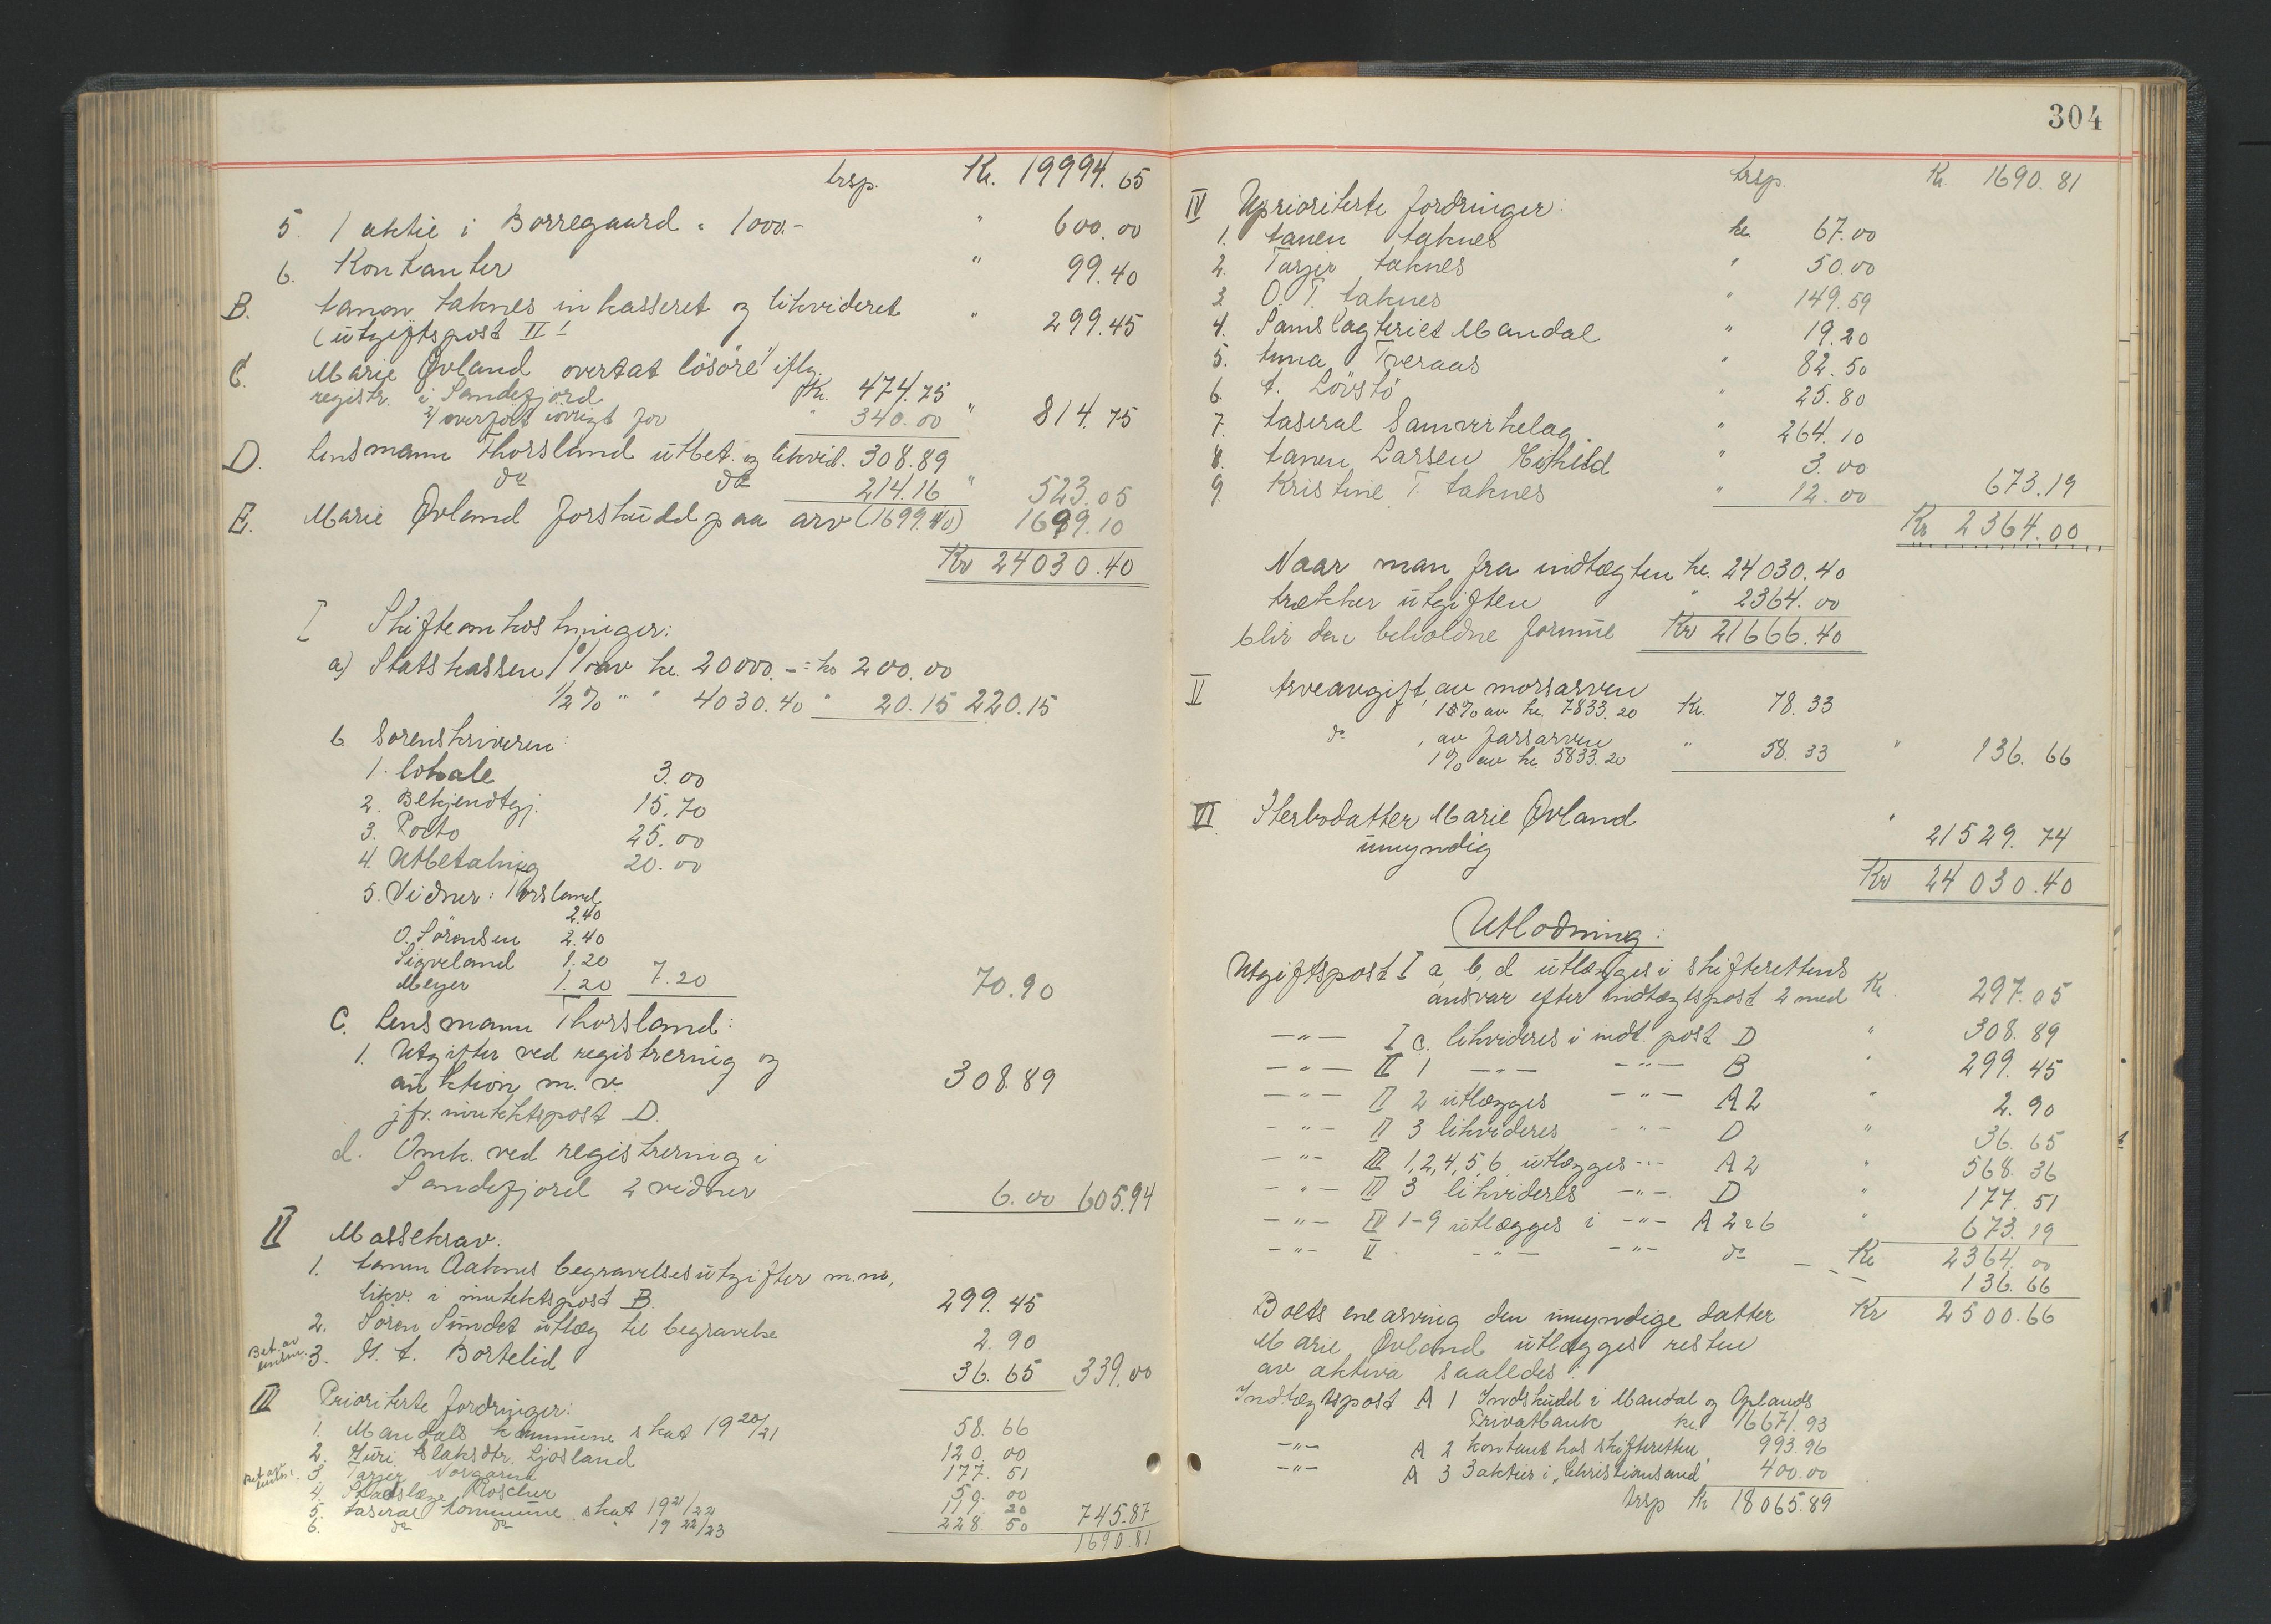 trsp. Kr. 19994.65
5. 1 aktie i Borregaard à 1000.- " 600.00
6. Kontanter " 99.40
B. Aanen Aaknes inkasseret og likvideret " 299.45
(utgiftspost II 1
C. Marie Øvland overtat lösöre 1/ iflg.
registr. i Sandefjord Kr. 474.75
2/ overfört övrigt for " 340.00 " 814.75
D. Lensmann Thorsland utbet. og likvid. 308.89
do do 214.16 " 523.05
E. Marie Øvland forskudd paa arv (1699.10) 1699.10
Kr 24030.40
I Skifteomkostninger:
a) Statskassen 1% av kr. 20000.- = kr 200.00
1/2% " " 4030.40 " 20.15 220.15
b Sorenskriveren:
1. lokale 3.00
2. Bekjendtgj. 15.70
3. Porto 25.00
4. Utbetalning 20.00
5. Vidner: Thorsland
2.40
O. Sörensen 2.40
Sigveland 1.20
Meyer 1.20 7.20 70.90
C. Lensmann Thorsland:
1. Utgifter ved registrering og
auktion m. v. 308.89
jfr. inntektspost D.
d. Omk. ved registrering i
Sandefjord 2 vidner 6.00 605.94
II Massekrav.
1. Aanen Aaknes begravelsesutgifter m.m,
likv. i inntektspost B. 299.45
2. Sören Sundet utlæg til begravelse 2.90
Bet. av
3. G. A. Bortelid 36.65 339.00
III Prioriterte fordringer:
1. Mandals kommune skat 19 20/21 58.66
2. Guri Aslaksdtr. Ljosland 120.00
3. Tarjer 177.51
4. Stadslæge Roscher 50.00
5. Aaseral kommune skat 19 21/22 119.20 745.87
6. do do " 19 22/23 228.50
1690.81
304
trsp. Kr. 1690.81
IV Uprioriterte fordringer:
1. Aanen Aaknes kr. 67.00
2. Tarjer Aaknes " 50.00
3. O. T. Aaknes " 149.59
4. Samslagteriet Mandal " 19.20
5. Anna Tveraas " 82.50
6. A. Lövstö " 25.80
7. Aaseral Samvirkelag " 264.10
8. Aanen Larsen " 3.00
9. Kristine T. Aaknes " 12.00 673.19
Kr 2364.00
Naar man fra indtægten kr. 24030.40
trækker utgiften " 2364.00
blir den beholdne formue Kr 21666.40
V Arveavgift av morsarven
1% av kr. 7833.20 Kr. 78.33
do , av farsarven
1% av kr. 5833.20 " 58.33 " 136.66
VI Sterbodatter Marie Øvland "
umyndig 21529.74
Kr 24030.40
Utlodning:
Utgiftspost I a, b, d utlægges i skifterettens
ansvar efter indtægtspost 2 med Kr. 297.05
—"— I c. likvideres i indt. post D " 308.89
—"— II 1 —"— —"— B " 299.45
—"— II 2 utlægges —"— A2 " 2.90
—"— II 3 likvideres —"— D " 36.65
—"— III 1,2,4,5,6 utlægges —"— A2 " 568.36
—"— III 3 likvideres —"— D " 177.51
—"— IV 1-9 utlægges i —"— A 2 a 6 " 673.19
Kr 2364.00
—"— V —"— —"— do — — — 136.66
Boets enearving den umyndige datter Kr 2500.66
Marie Øvland utlægges resten
av aktiva saaledes:
Indtægtspost A 1 Indskudd i Mandal og Oplands
Privatbank kr. 16671.93
—"— A 2 kontant hos skifteretten 993.96
—"— A 3 3 aktier i „Christiansand" 400.00
trsp kr 18065.89